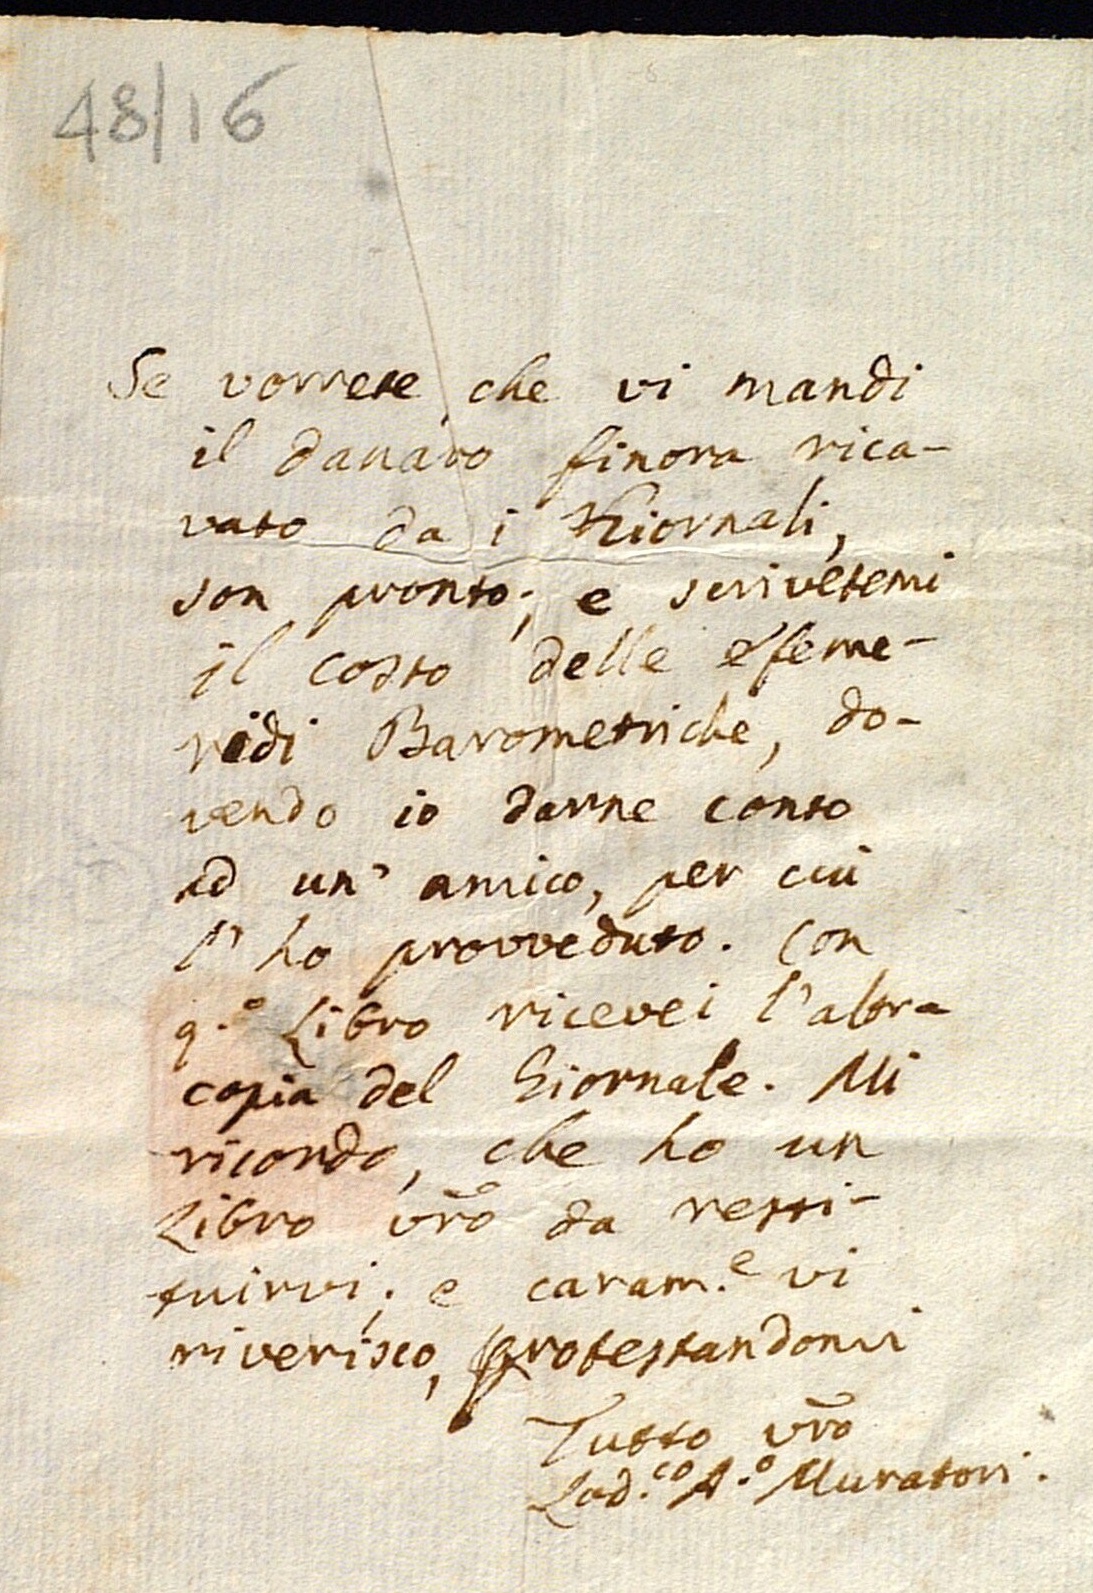 48/16
Se vorrete che vi mandi
il danaro finora rica-
vato da i Giornali,
son pronto; e scrivetemi
il costo delle efeme-
ridi Barometriche, do-
vendo io darne conto
ad un' amico, per cui
l' ho provveduto. Con
q.º Libro ricevei l'altra
copia del Giornale. Mi
ricordo, che ho un
Libro vr̃o da resti-
tuirvi; e caram.e vi
riverisco, protestandomi
Tutto vr̃o
Lod.co A.º Muratori.